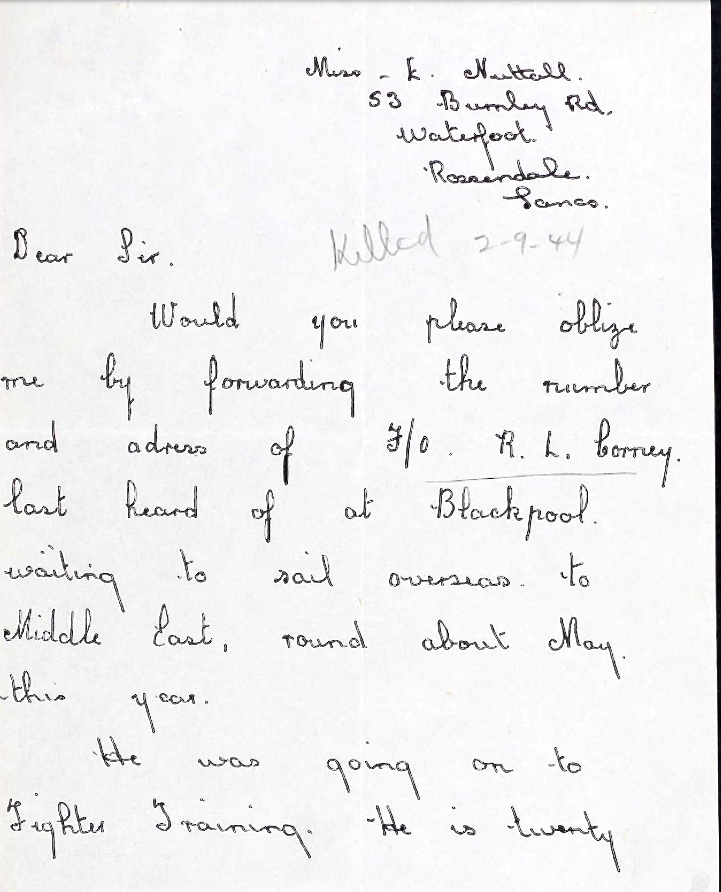 Miss - E. Nuttall.
53 Burnley Rd.
Waterfoot.
Rossendale.
Lancs.
Dear Sir.
Killed 2-9-44
Would you please oblize
me by forwarding the number
and adress of F/O. R. L. Corney.
last heard of at Blackpool.
waiting to sail overseas to
Middle East, round about May.
this year.
He was going on to
Fighter Training. He is twenty